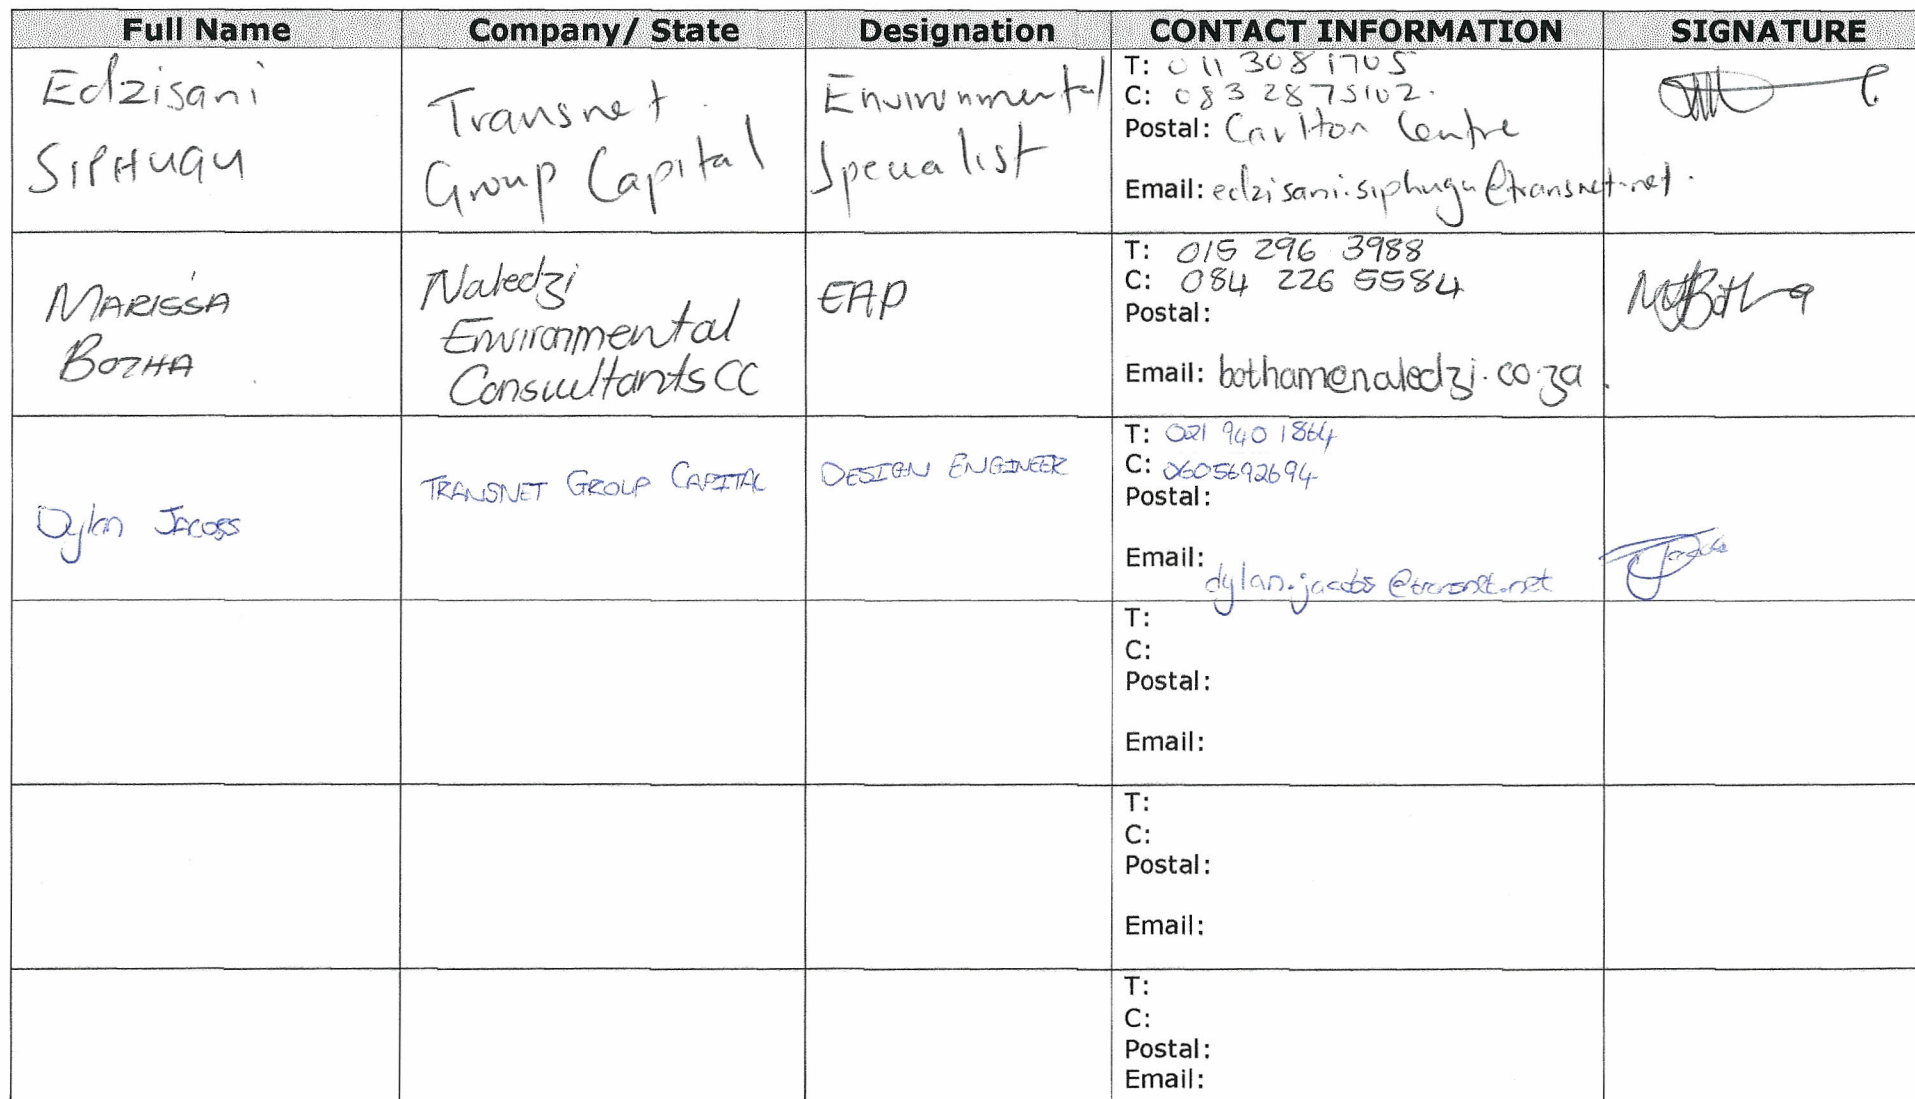 Full Name Company/ State Designation CONTACT INFORMATION SIGNATURE
Edzisani
SIPHUGU
Transnet
Group Capital
Environmental
Specialist
T: 011 308 1705
C: 083 2875102.
Postal: Carlton Centre
Email: edzisani.siphugu@transnet.net.
MARISSA
BOTHA
Naledzi
Environmental
Consultants CC
EAP
T: 015 296 3988
C: 084 226 5584
Postal:
Email: botham@naledzi.co.za
MJBotha
Dylan JACOBS
TRANSNET GROUP CAPITAL
DESIGN ENGINEER
T: 021 940 1864
C: 0605692694
Postal:
Email:
dylan.jacobs@transnet.net
T:
C:
Postal:
Email:
T:
C:
Postal:
Email:
T:
C:
Postal:
Email: